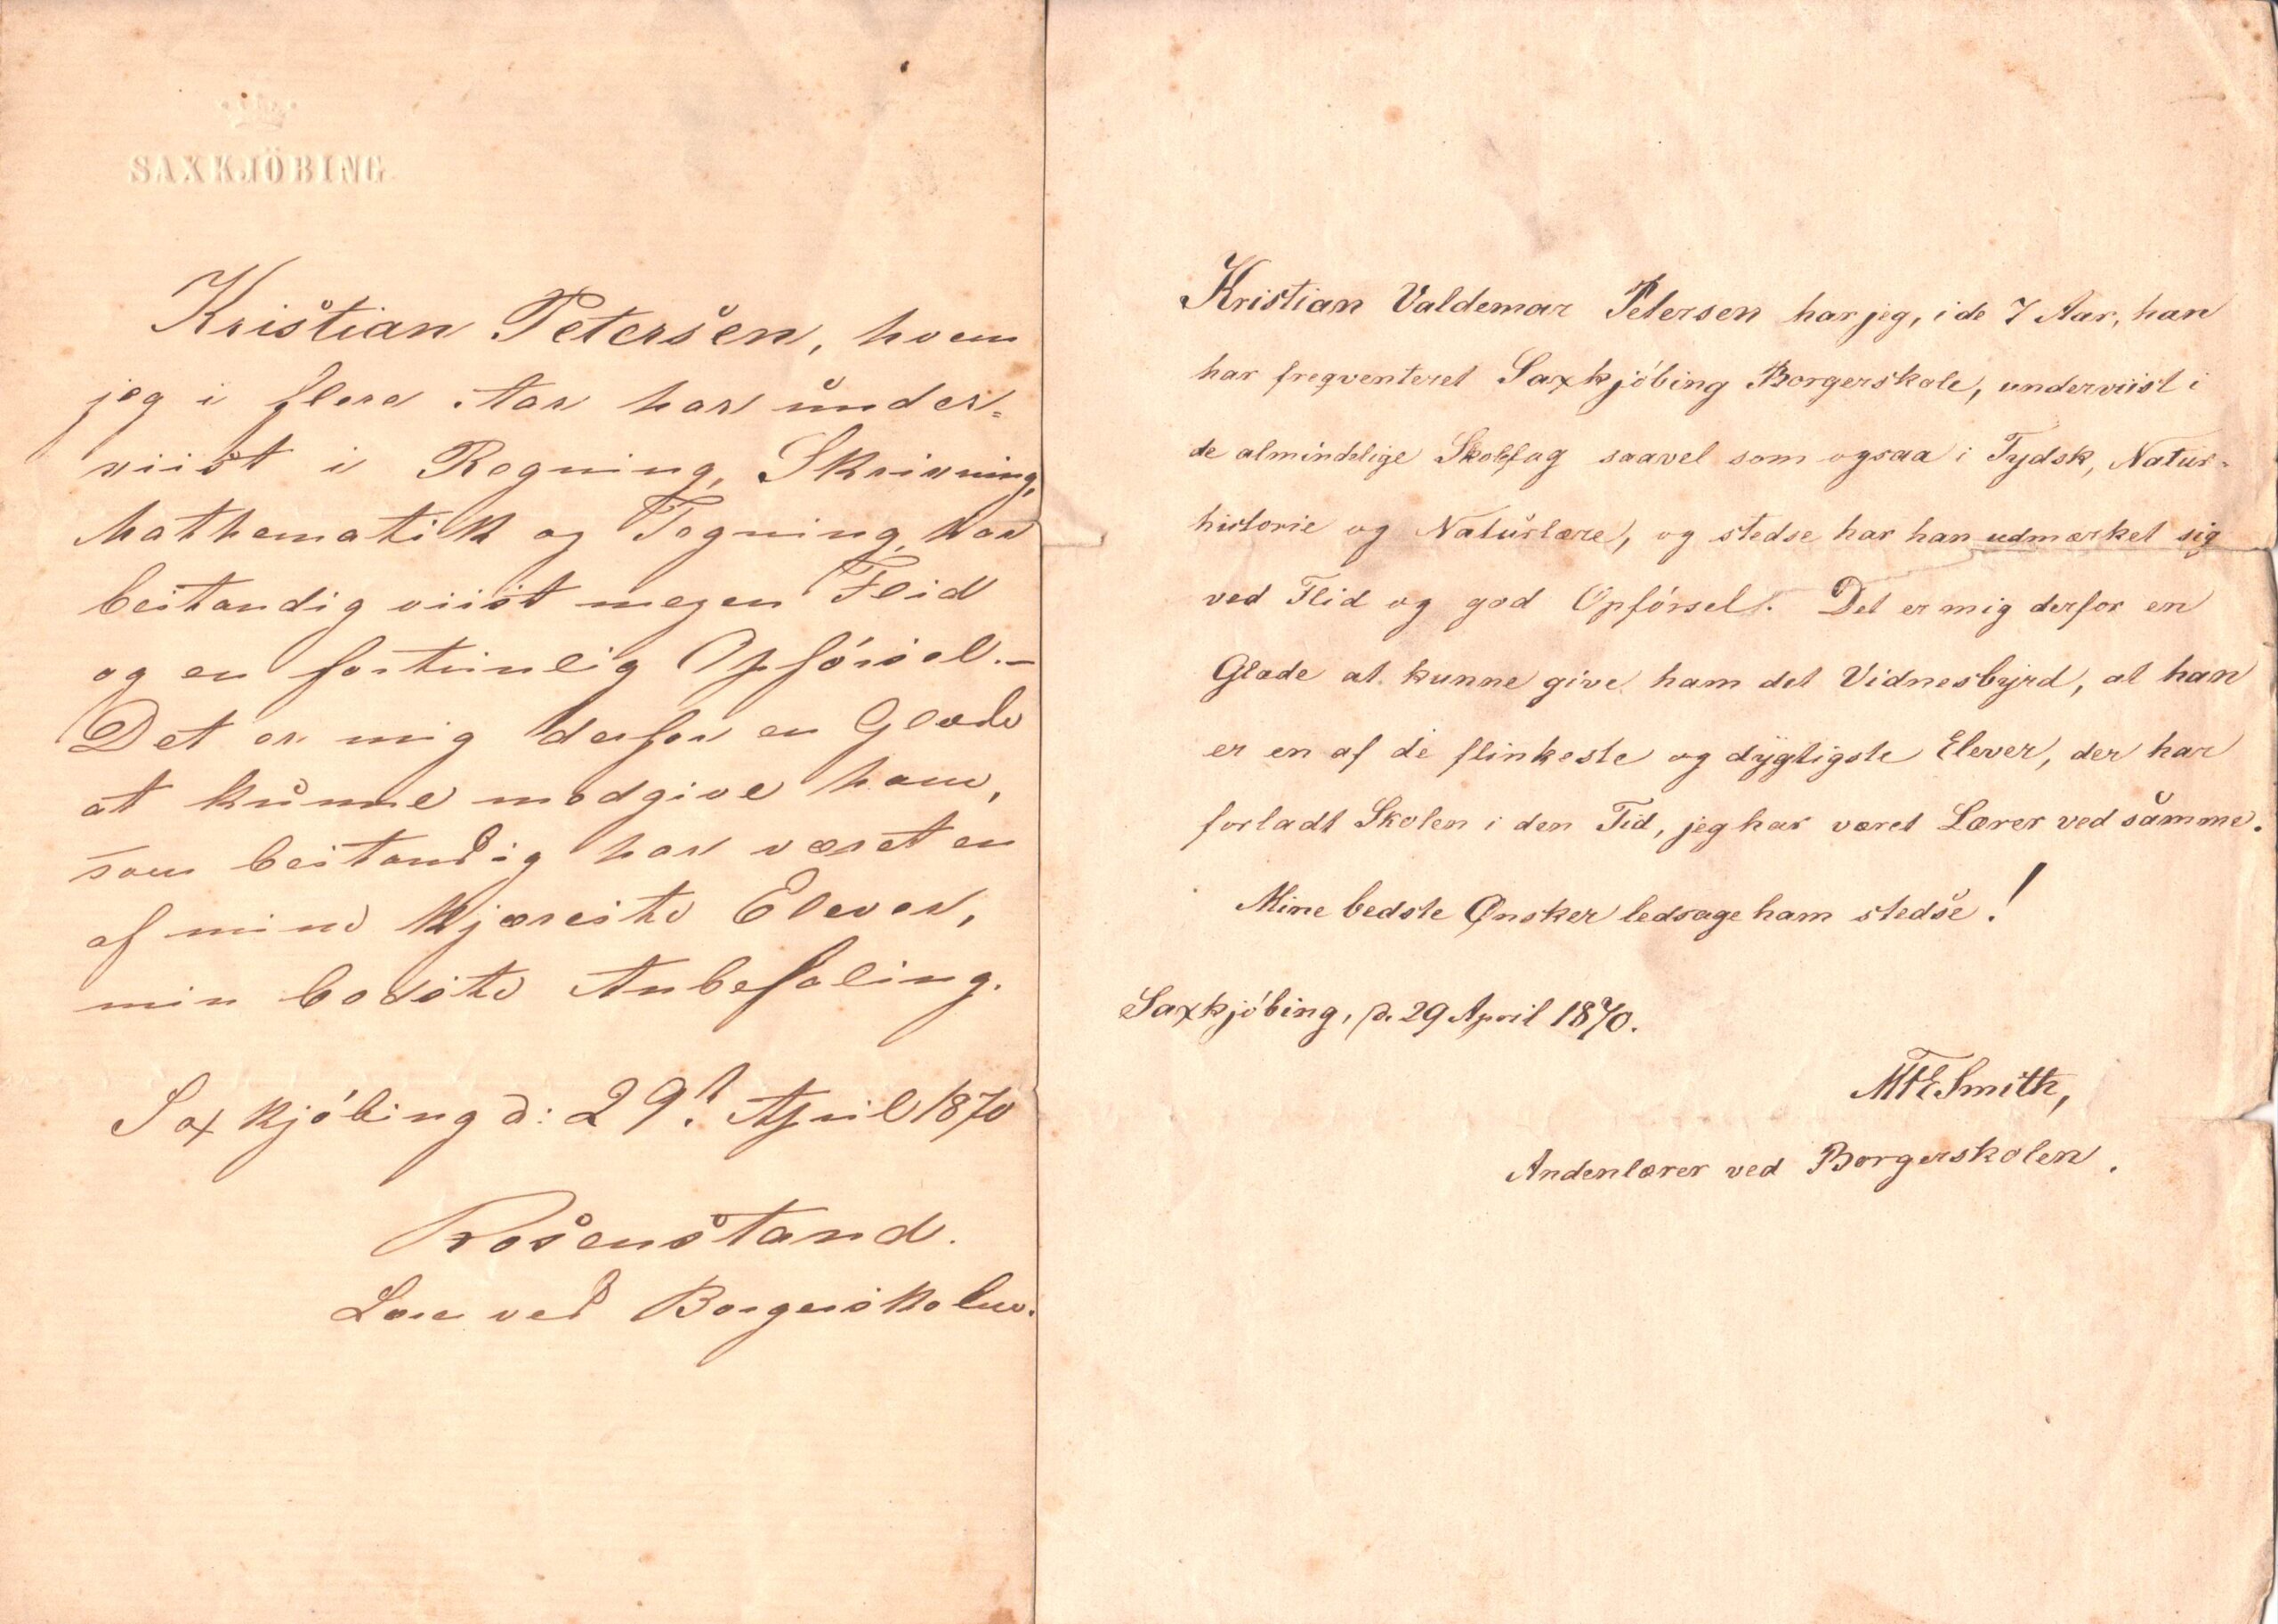 SAXKJÖBING
Kristian Petersen, hvem
jeg i flere Aar har under-
viist i Regning, Skrivning,
Mathematik og Tegning, har
bestandig viist megen Flid
og en fortrinlig Opførsel.-
Det er mig derfor en Glæde
at kunne medgive ham,
som bestandig har været en
af mine kjæreste Elever,
min bedste Anbefaling.
Saxkjøbing d: 29d April 1870
Rosenstand.
Lærer ved Borgerskolen.
Kristian Valdemar Petersen har jeg, i de 7 Aar, han
har freqventeret Saxkjøbing Borgerskole, underviist i
de almindelige Skolefag saavel som ogsaa i Tydsk, Natur-
historie og Naturlære, og stedse har han udmærket sig
ved Flid og god Opførsel. Det er mig derfor en
Glæde at kunne give ham det Vidnesbyrd, at han
er en af de flinkeste og dygtigste Elever, der har
forladt Skolen i den Tid, jeg har været Lærer ved samme.
Mine bedste Ønsker ledsage ham stedse!
Saxkjøbing, d. 29 April 1870.
Smith,
Andenlærer ved Borgerskolen.